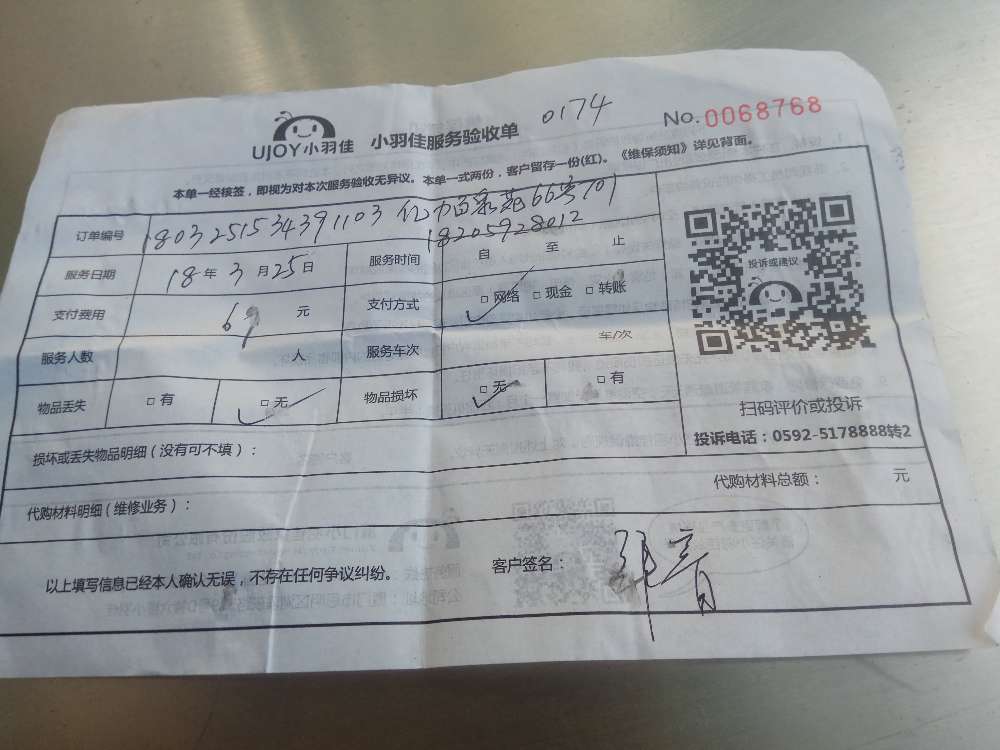 UJOY小羽佳 小羽佳服务验收单 0174 No.0068768
本单一经核签，即视为对本次服务验收无异议。本单一式两份，客户留存一份(红)。《维保须知》详见背面。
订单编号 1803251534391103 亿力百家苑66号701
18205928012
服务日期 18年3月25日 服务时间 自 至 止
支付费用 69 元 支付方式 □网络 □现金 □转账
服务人数 人 服务车次 车/次
物品丢失 □有 □无 物品损坏 □无 □有
投诉或建议
扫码评价或投诉
投诉电话：0592-5178888转2
损坏或丢失物品明细（没有可不填）：
代购材料明细（维修业务）： 代购材料总额： 元
以上填写信息已经本人确认无误，不存在任何争议纠纷。 客户签名：